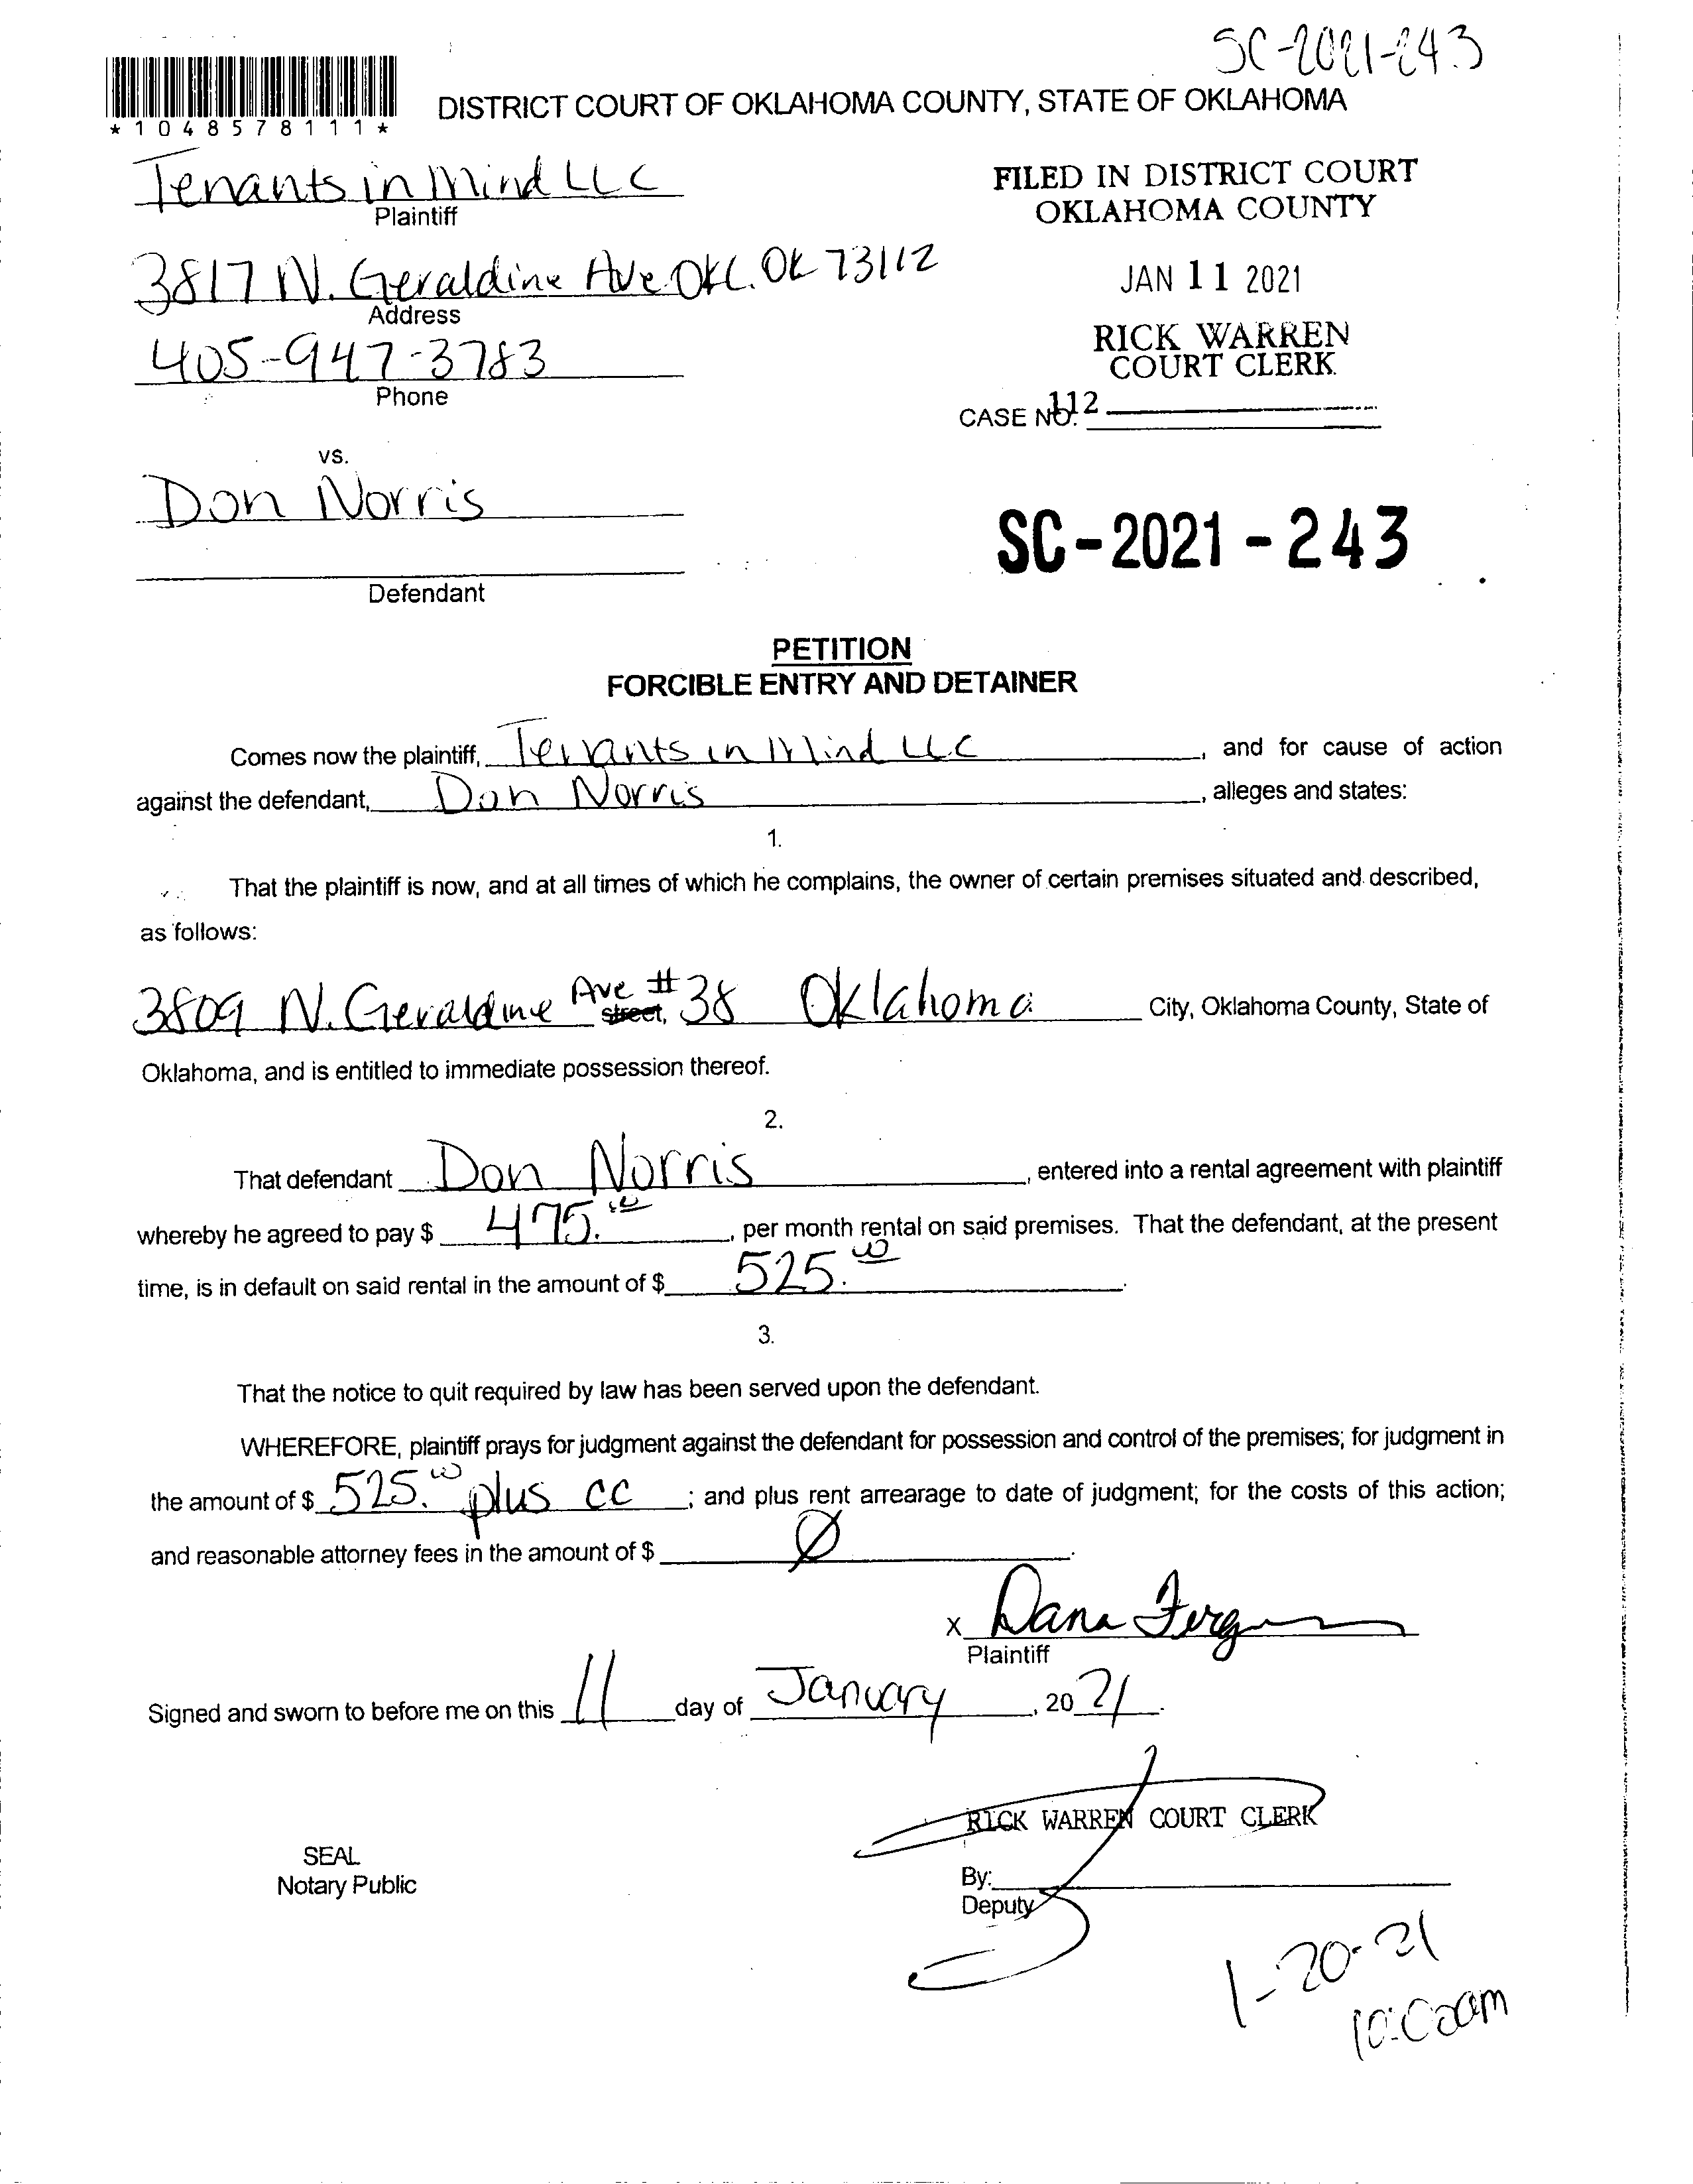 SC-2021-243
*1048578111*
DISTRICT COURT OF OKLAHOMA COUNTY, STATE OF OKLAHOMA
Tenants in Mind LLC
Plaintiff
FILED IN DISTRICT COURT
OKLAHOMA COUNTY
3817 N. Geraldine Ave OKC. OK 73112
Address
JAN 11 2021
405-947-3783
Phone
RICK WARREN
COURT CLERK
CASE NO. 112
vs.
Don Norris
SC-2021-243
Defendant
PETITION
FORCIBLE ENTRY AND DETAINER
Comes now the plaintiff, Tenants in Mind LLC, and for cause of action
against the defendant, Don Norris, alleges and states:
1.
That the plaintiff is now, and at all times of which he complains, the owner of certain premises situated and described,
as follows:
3809 N. Geraldine Ave street, #38 Oklahoma City, Oklahoma County, State of
Oklahoma, and is entitled to immediate possession thereof.
2.
That defendant Don Norris, entered into a rental agreement with plaintiff
whereby he agreed to pay $ 475.00, per month rental on said premises. That the defendant, at the present
time, is in default on said rental in the amount of $ 525.00.
3.
That the notice to quit required by law has been served upon the defendant.
WHEREFORE, plaintiff prays for judgment against the defendant for possession and control of the premises; for judgment in
the amount of $ 525.00 plus cc; and plus rent arrearage to date of judgment; for the costs of this action;
and reasonable attorney fees in the amount of $ Ø.
X Dana
Plaintiff
Signed and sworn to before me on this 11 day of January, 2021.
RICK WARREN COURT CLERK
SEAL
Notary Public
By:
Deputy
1-20-21
10:00am